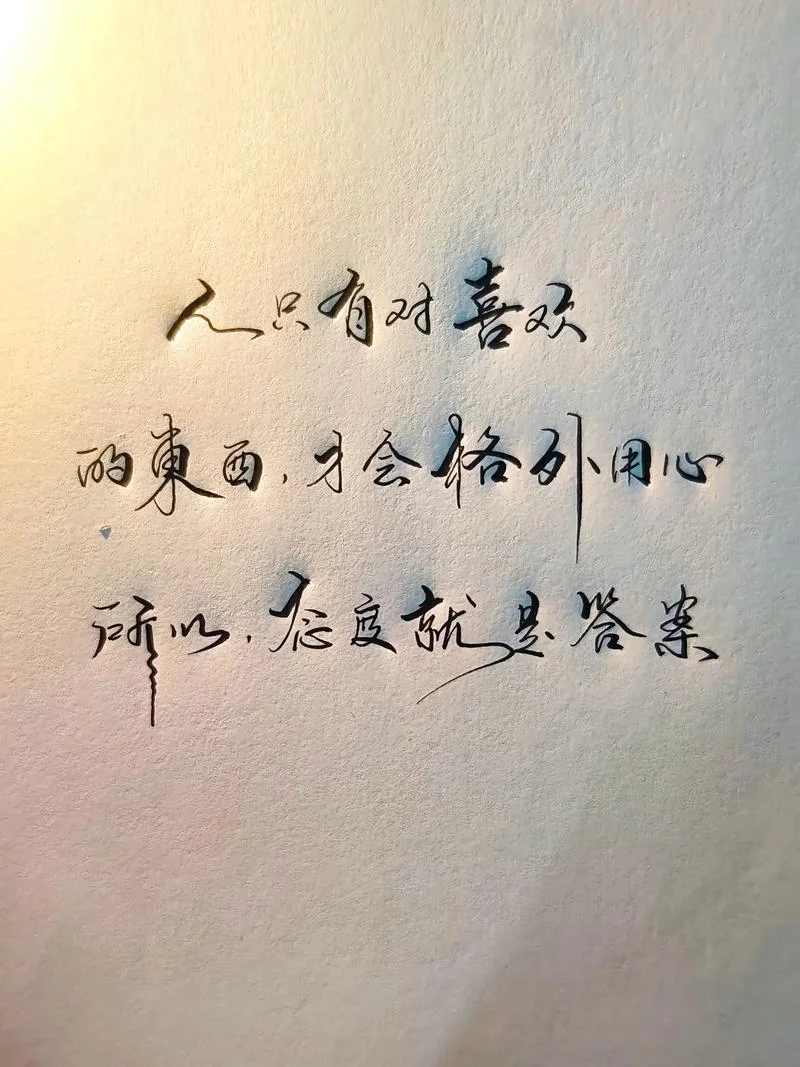 人只有对喜欢
的東西,才会格外用心
所以,态度就是答案